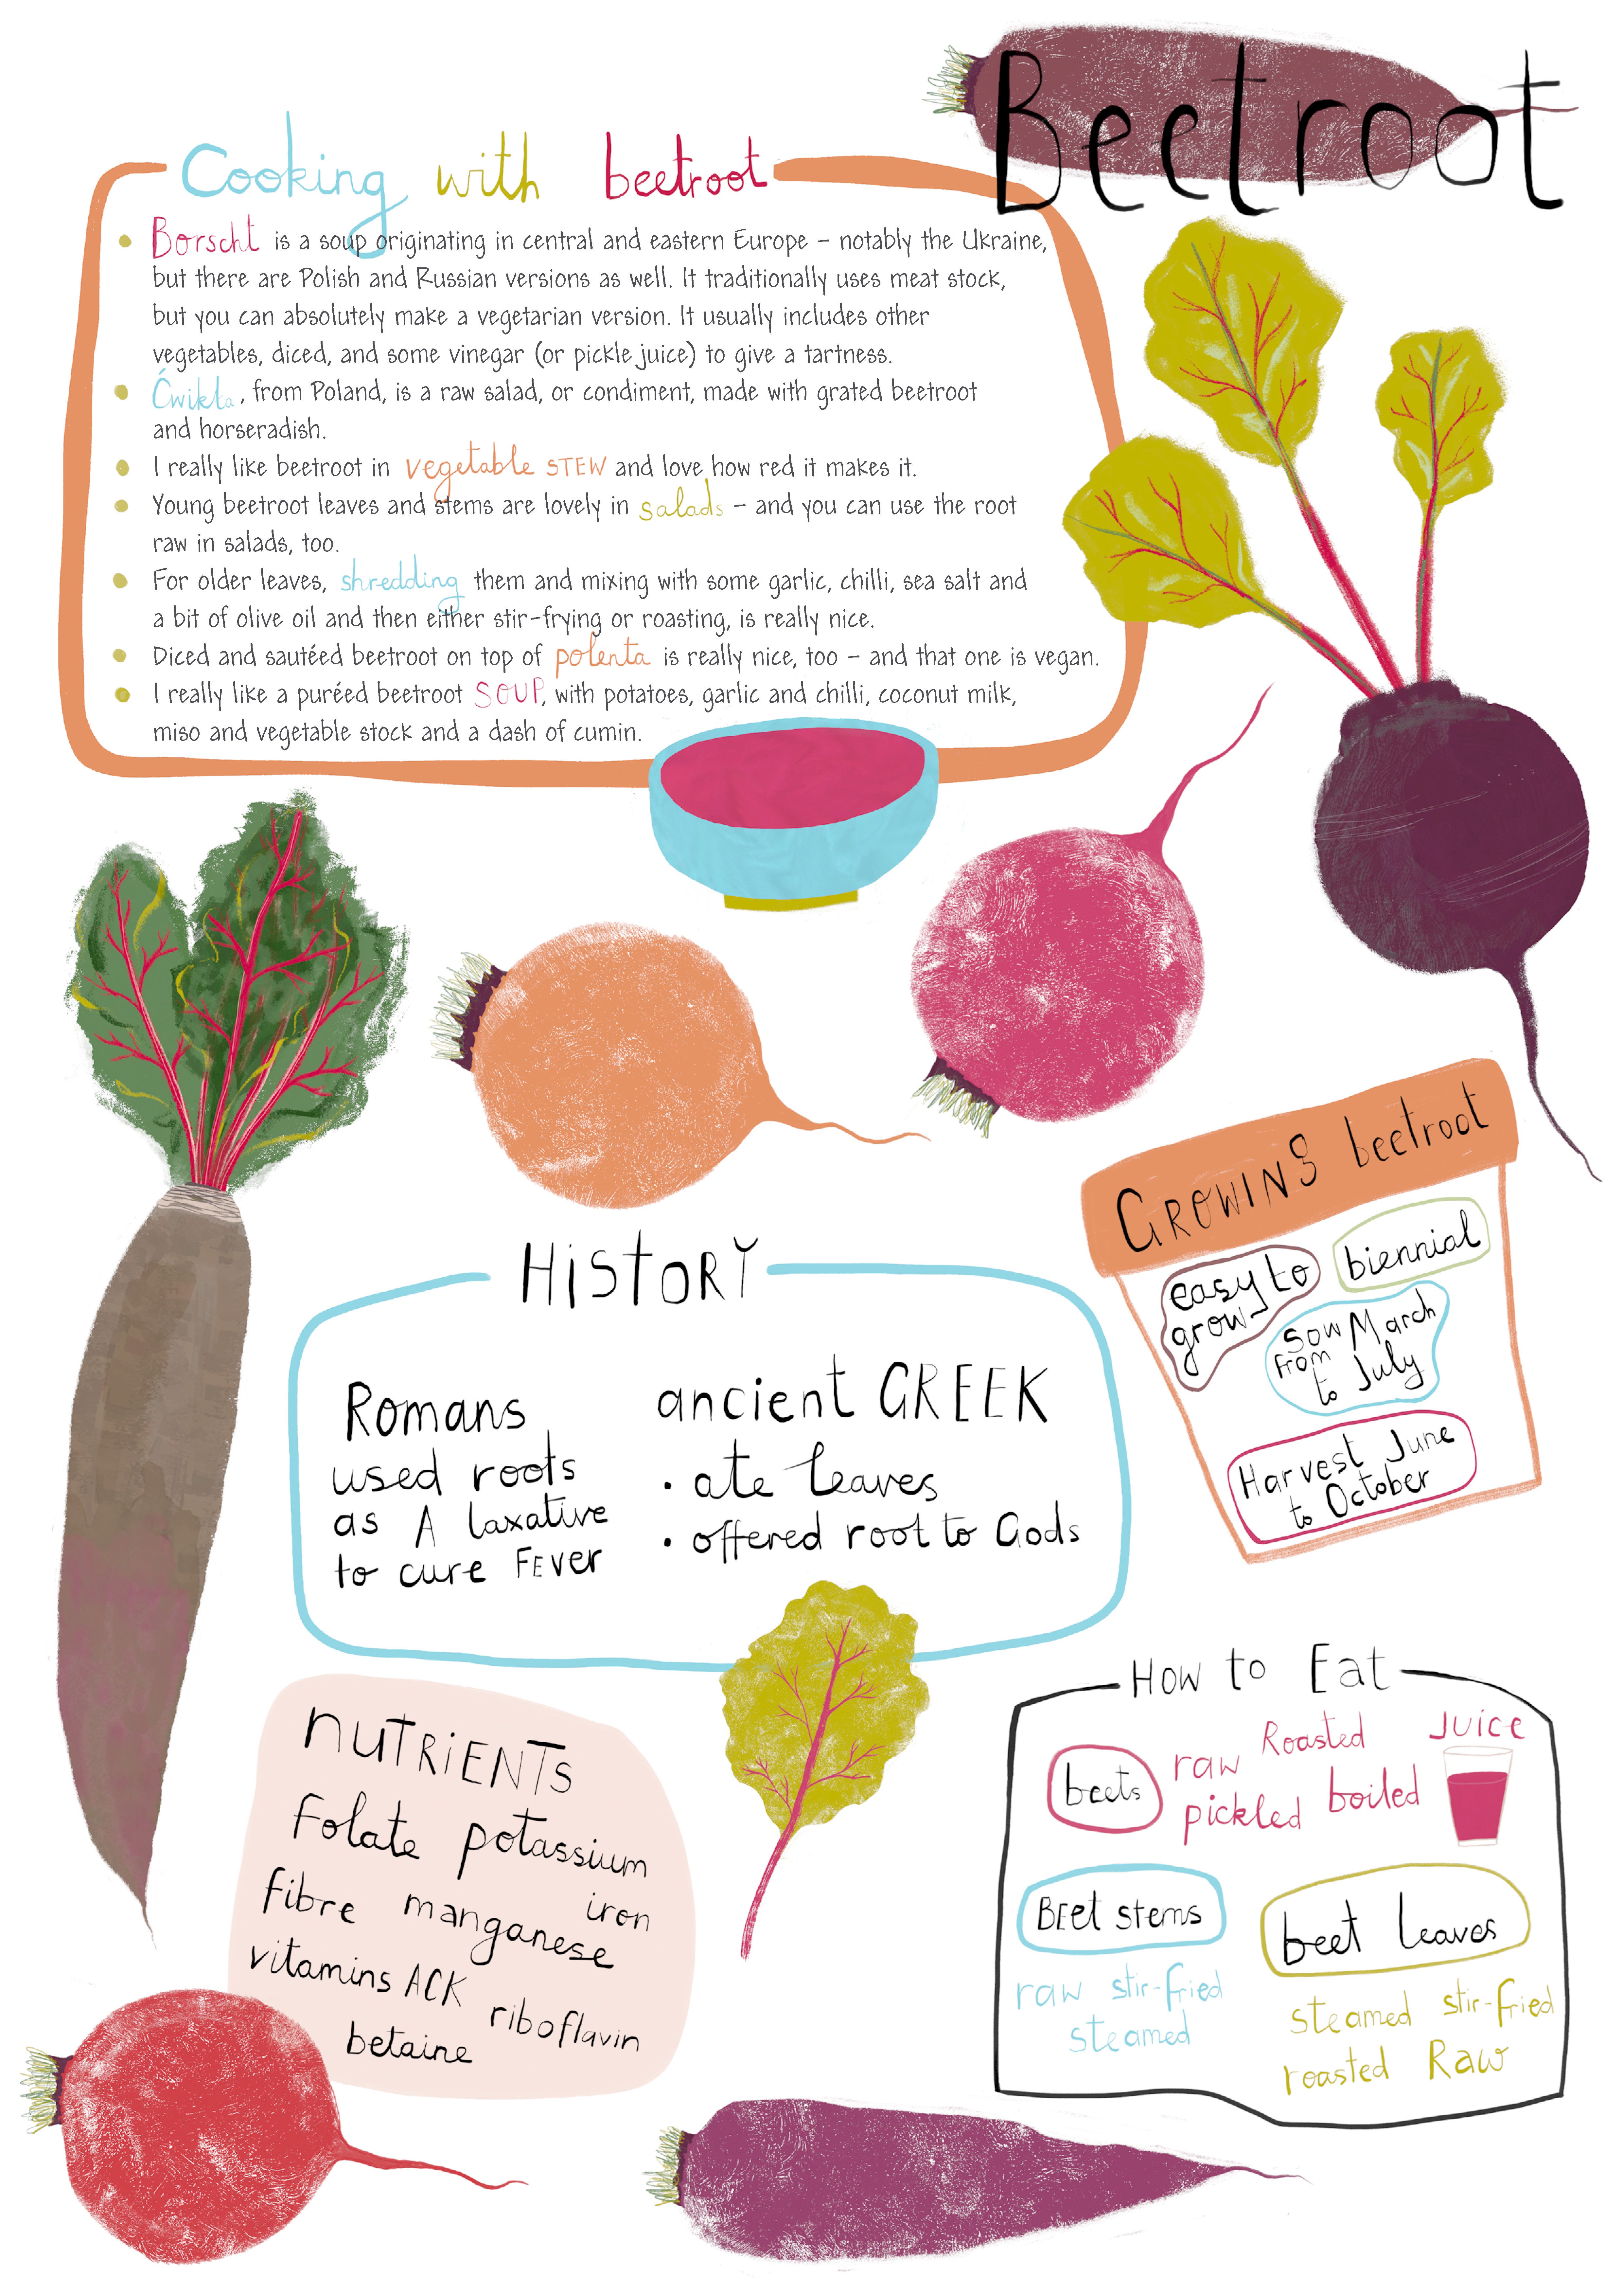 Beetroot
Cooking with beetroot
• Borscht is a soup originating in central and eastern Europe – notably the Ukraine,
but there are Polish and Russian versions as well. It traditionally uses meat stock,
but you can absolutely make a vegetarian version. It usually includes other
vegetables, diced, and some vinegar (or pickle juice) to give a tartness.
• Ćwikła, from Poland, is a raw salad, or condiment, made with grated beetroot
and horseradish.
• I really like beetroot in vegetable STEW and love how red it makes it.
• Young beetroot leaves and stems are lovely in salads – and you can use the root
raw in salads, too.
• For older leaves, shredding them and mixing with some garlic, chilli, sea salt and
a bit of olive oil and then either stir-frying or roasting, is really nice.
• Diced and sautéed beetroot on top of polenta is really nice, too – and that one is vegan.
• I really like a puréed beetroot SOUP, with potatoes, garlic and chilli, coconut milk,
miso and vegetable stock and a dash of cumin.
GROWING beetroot
easy to
grow
biennial
Sow March
from
to July
Harvest June
to October
HiSTORY
Romans
used roots
as A laxative
to cure FEVer
ancient GREEK
• ate leaves
• offered root to Gods
nUTRiENTs
Folate potassium
fibre manganese iron
vitamins ACK
riboflavin
betaine
How to Eat
beets
raw Roasted JUiCE
pickled boiled
BEet stems
raw stir-fried
steamed
beet leaves
steamed stir-fried
roasted Raw